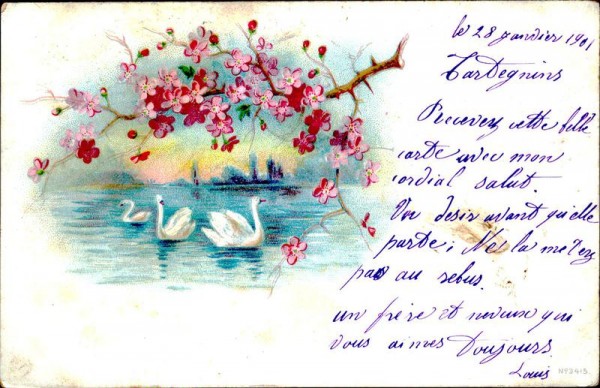 le 28 janvier 1901
Tartegnins
Recevez cette belle
carte avec mon
cordial salut.
Un desir avant qu'elle
parte; Ne la metez
pas au rebus.
un frère et neveux qui
vous aimes Toujours.
Louis
Nº 2413.